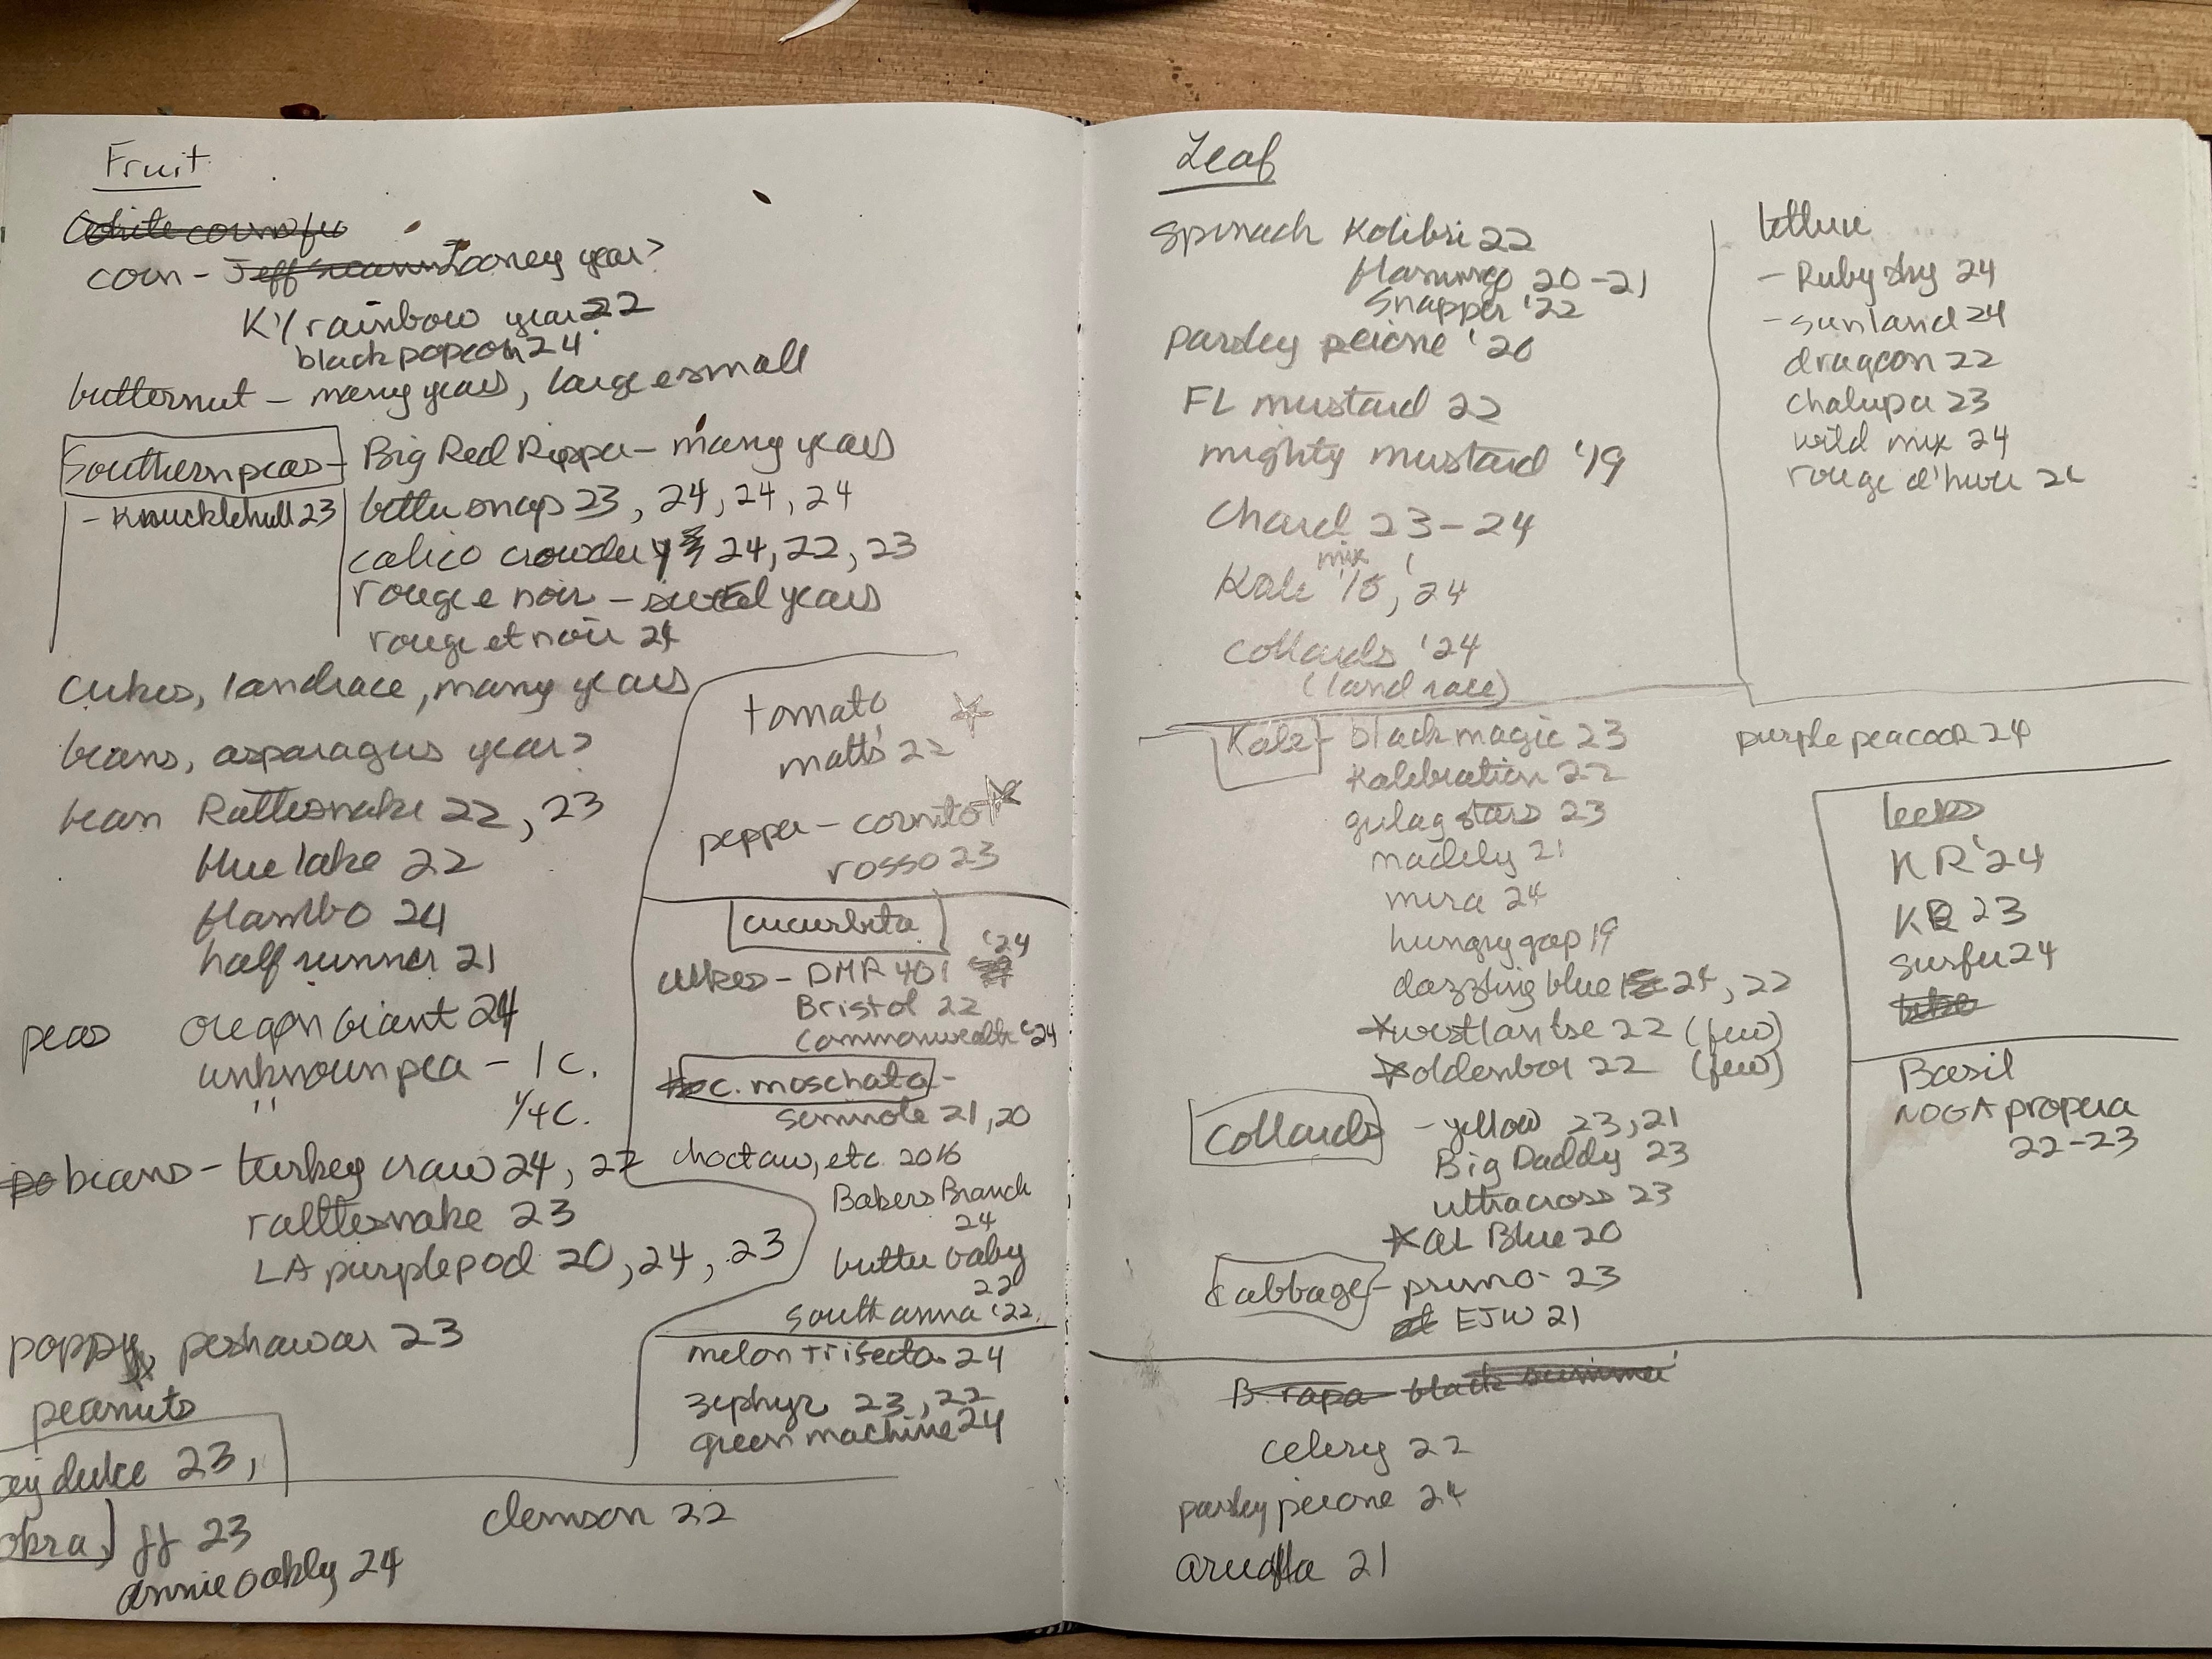 Fruit
corn - Looney year?
KY rainbow year 22
black popcorn 24
butternut - many years, large & small
Southern peas - Big Red Ripper - many years
- Knucklehull 23
bettersnaps 23, 24, 24, 24
calico crowder 24, 22, 23
rouge e noir - years
rouge et noir 24
cukes, landrace, many years
beans, asparagus year?
bean Rattlesnake 22, 23
blue lake 22
flambo 24
half runner 21
peas oregon giant 24
unknown pea - 1 c.
" 1/4 c.
beans - turkey craw 24, 22
rattlesnake 23
LA purplepod 20, 24, 23
poppy, peshawar 23
peanuts
dulce 23,
okra] jj 23
annie oakly 24
clemson 22
tomato
matts 22
pepper - cornito
rosso 23
cucurbita
cukes - DMR 401 '24
Bristol 22
Commonwealth '24
c. moschata -
seminole 21, 20
choctaw, etc. 2016
Bakers Branch
24
butter baby
22
south anna '22
melon trifecta 24
zephyr 23, 22
green machine 24
Leaf
spinach Kolibri 22
flamingo 20-21
Snapper '22
parsley peione '20
FL mustard 22
mighty mustard '19
chard 23-24
mix
Kale '24
collards '24
(land race)
Kale - black magic 23
Kalebration 22
gulag stars 23
madely 21
mira 24
hungry gap 19
dazzling blue 24, 22
westlantse 22 (few)
oldenbor 22 (few)
Collards - yellow 23, 21
Big Daddy 23
ultracross 23
AL Blue 20
Cabbage - primo - 23
EJW 21
B. rapa black summer
celery 22
parsley peione 24
21
lettuce
- Ruby sky 24
- sunland 24
dragoon 22
chalupa 23
wild mix 24
rouge d'hiver
purple peacock 24
leeks
KR '24
KR 23
surfer 24
Basil
NOGA propera
22-23